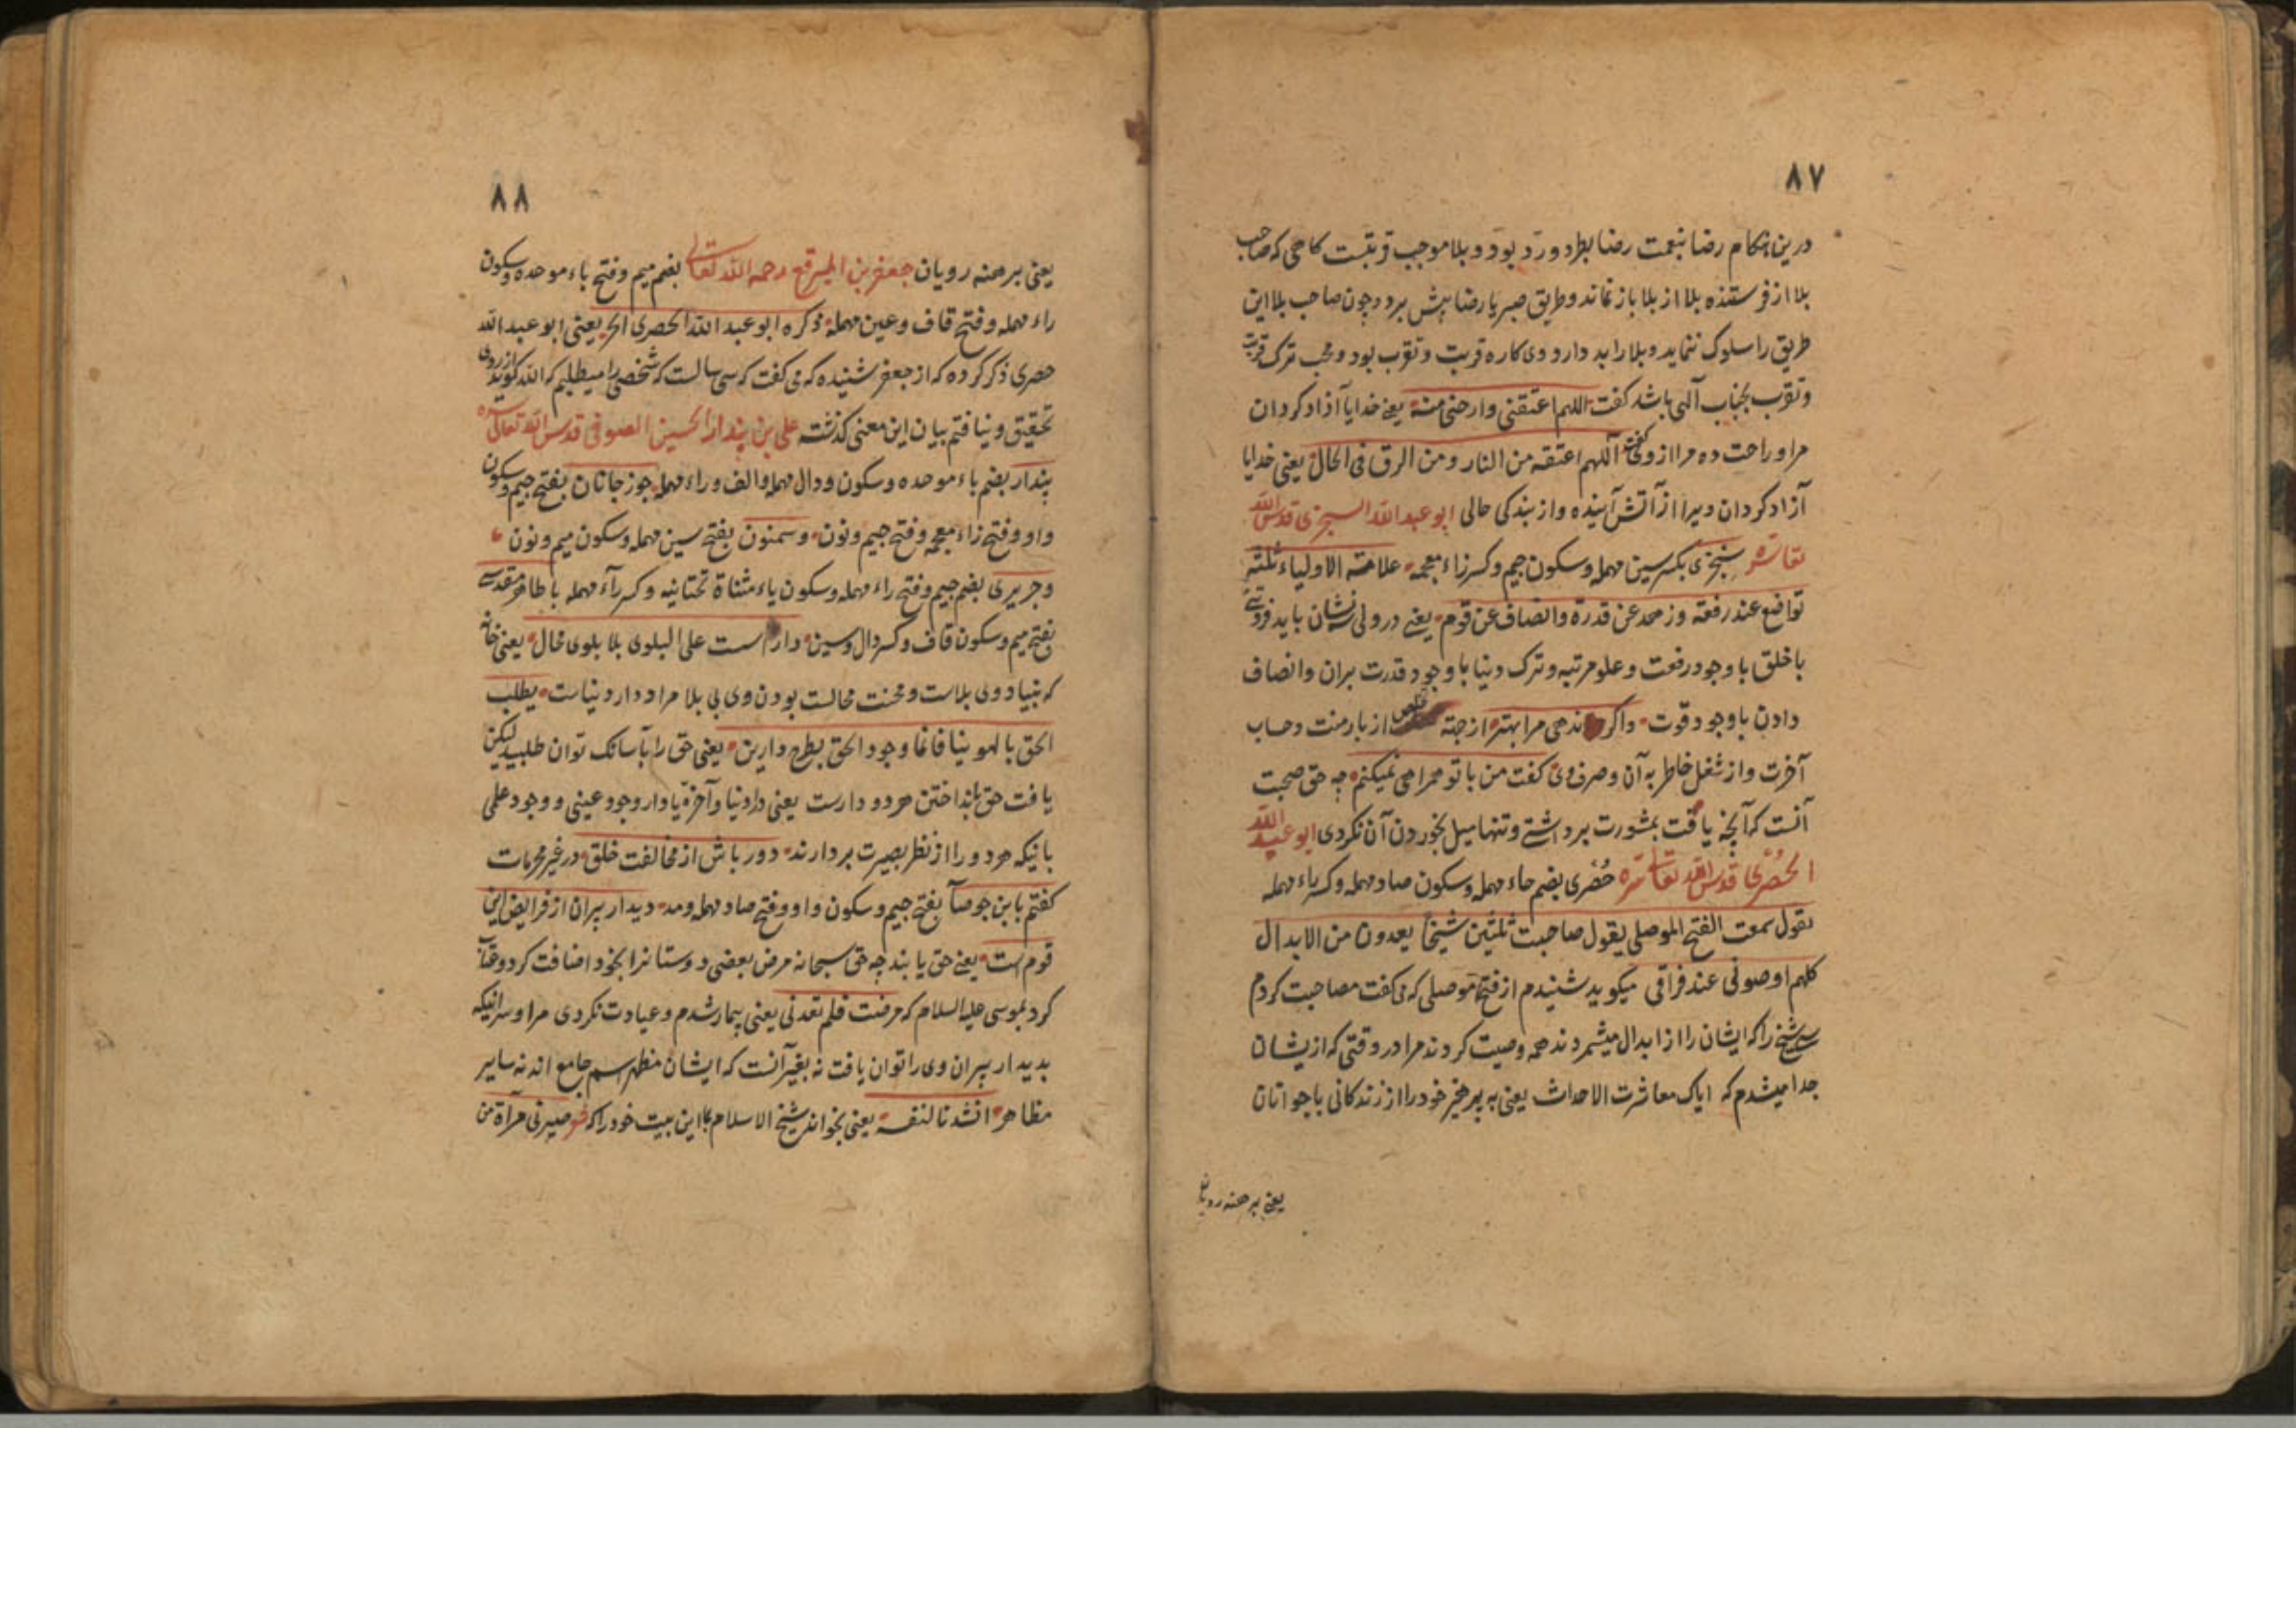 ۸۷
درین هنگام رضا بنعمت رضا بطرد و رد بود و بلا موجب قربتست کاهی که صاحب
بلا از فرستنده بلا از بلا باز نماند و طریق صبر یا رضا پیش برد و چون صاحب بلا این
طریق را سلوک ننماید و بلا را بد دارد وی کاره قربت و تقرب بود و محب ترک قربت
و تقرب بجناب آلهی باشد کفت اللهم اعتقنی وارحنی منه یعنی خدایا آزاد کردان
مرا و راحت ده مرا ازو کفت اللهم اعتقه من النار و من الرق فی الحال یعنی خدایا
آزاد کردان ویرا از آتش آینده و از بندکی حالی ابو عبد الله السجزی قدس الله
تعا سره سجزی بکسر سین مهمله و سکون جیم و کسر زاء معجمه علامة الاولیاء ثلثة
تواضع عند رفعة وزهد عن قدرة وانصاف عن قوم یعنی در ولی سه نشان باید فروتنی
با خلق با وجود رفعت و علو مرتبه و ترک دنیا با وجود قدرت بران و انصاف
دادن با وجود قوت واکر ندهی مرا بهتر از جهة خلاص از بار منت و حساب
آخرت و از شغل خاطر به آن و صرف وی کفت من با تو همراهی نمیکنم چه حق صحبت
آنست که آنچه یافت بمشورت برداشتی و تنها میل بخوردن آن نکردی ابو عبد الله
الحُصْری قدس الله تعالی سره حُصْری بضم حاء مهمله و سکون صاد مهمله و کسر راء مهمله
یقول سمعت الفتح الموصلی یقول صاحبت ثلثین شیخا یعدون من الابدال
کلهم اوصونی عند فراقی میکوید شنیدم از فتح موصلی که می کفت مصاحبت کردم
سی شیخ را که ایشان را از ابدال میشمردند همه وصیت کردند مرا در وقتی که ازیشان
جدا میشدم که ایاک معاشرت الاحداث یعنی به پرهیز خود را از زندکانی با جوانان
یعنی برهنه رویان
۸۸
یعنی برهنه رویان جعفر بن المبرقع رحمه الله تعالی بضم میم و فتح باء موحده و سکون
راء مهمله و فتح قاف و عین مهمله ذکره ابو عبد الله الحصری الخ یعنی ابو عبد الله
حصری ذکر کرده که از جعفر شنیده که می کفت که سی سالست که شخصی را میطلبم که الله کوید از روی
تحقیق و نیافتم بیان این معنی کذشته علی بن بندار الحسین الصوفی قدس الله تعالی سره
بندار بضم باء موحده و سکون و دال مهمله و الف و راء مهمله جوزجانان بفتح جیم و سکون
واو و فتح زاء معجمه و فتح جیم و نون و سمنون بفتح سین مهمله و سکون میم و نون
و جریری بضم جیم و فتح راء مهمله و سکون یاء مثناة تحتانیه و کسر رآء مهمله با طاهر مقدسی
بفتح میم و سکون قاف و کسر دال و سین دار اسست علی البلوی بلا بلوی محال یعنی خانه
که بنیاد وی بلاست و محنت محالست بودن وی بی بلا مراد دار دنیاست یطلب
الحق بالهوینا فانما وجود الحق بطرح دارین یعنی حق را بآسانک توان طلبید لیکن
یافت حق بانداختن هر دو دارست یعنی دار دنیا و آخرة یا دار وجود عینی و وجود علمی
بانیکه هر دو را از نظر بصیرت بردارند دور باش از مخالفت خلق در غیر محرمات
کفتم با بن جوصآ بفتح جیم و سکون واو و فتح صاد مهمله و مد دیدار پیران از فرایض این
قوم است یعنی حق یابند چه حق سبحانه مرض بعضی دوستانرا بخود اضافت کرد و عتاب
کرد بموسی علیه السلام که مرضت فلم تعدنی یعنی بیمار شدم و عیادت نکردی مرا و سر انیکه
بدیدار پیران وی را توان یافت نه بغیر آنست که ایشان مظهر اسم جامع اند نه سایر
مظاهر انشدنا لنفسه یعنی بخواند شیخ الاسلام بما این بیت خود را که صیرنی مرآة من